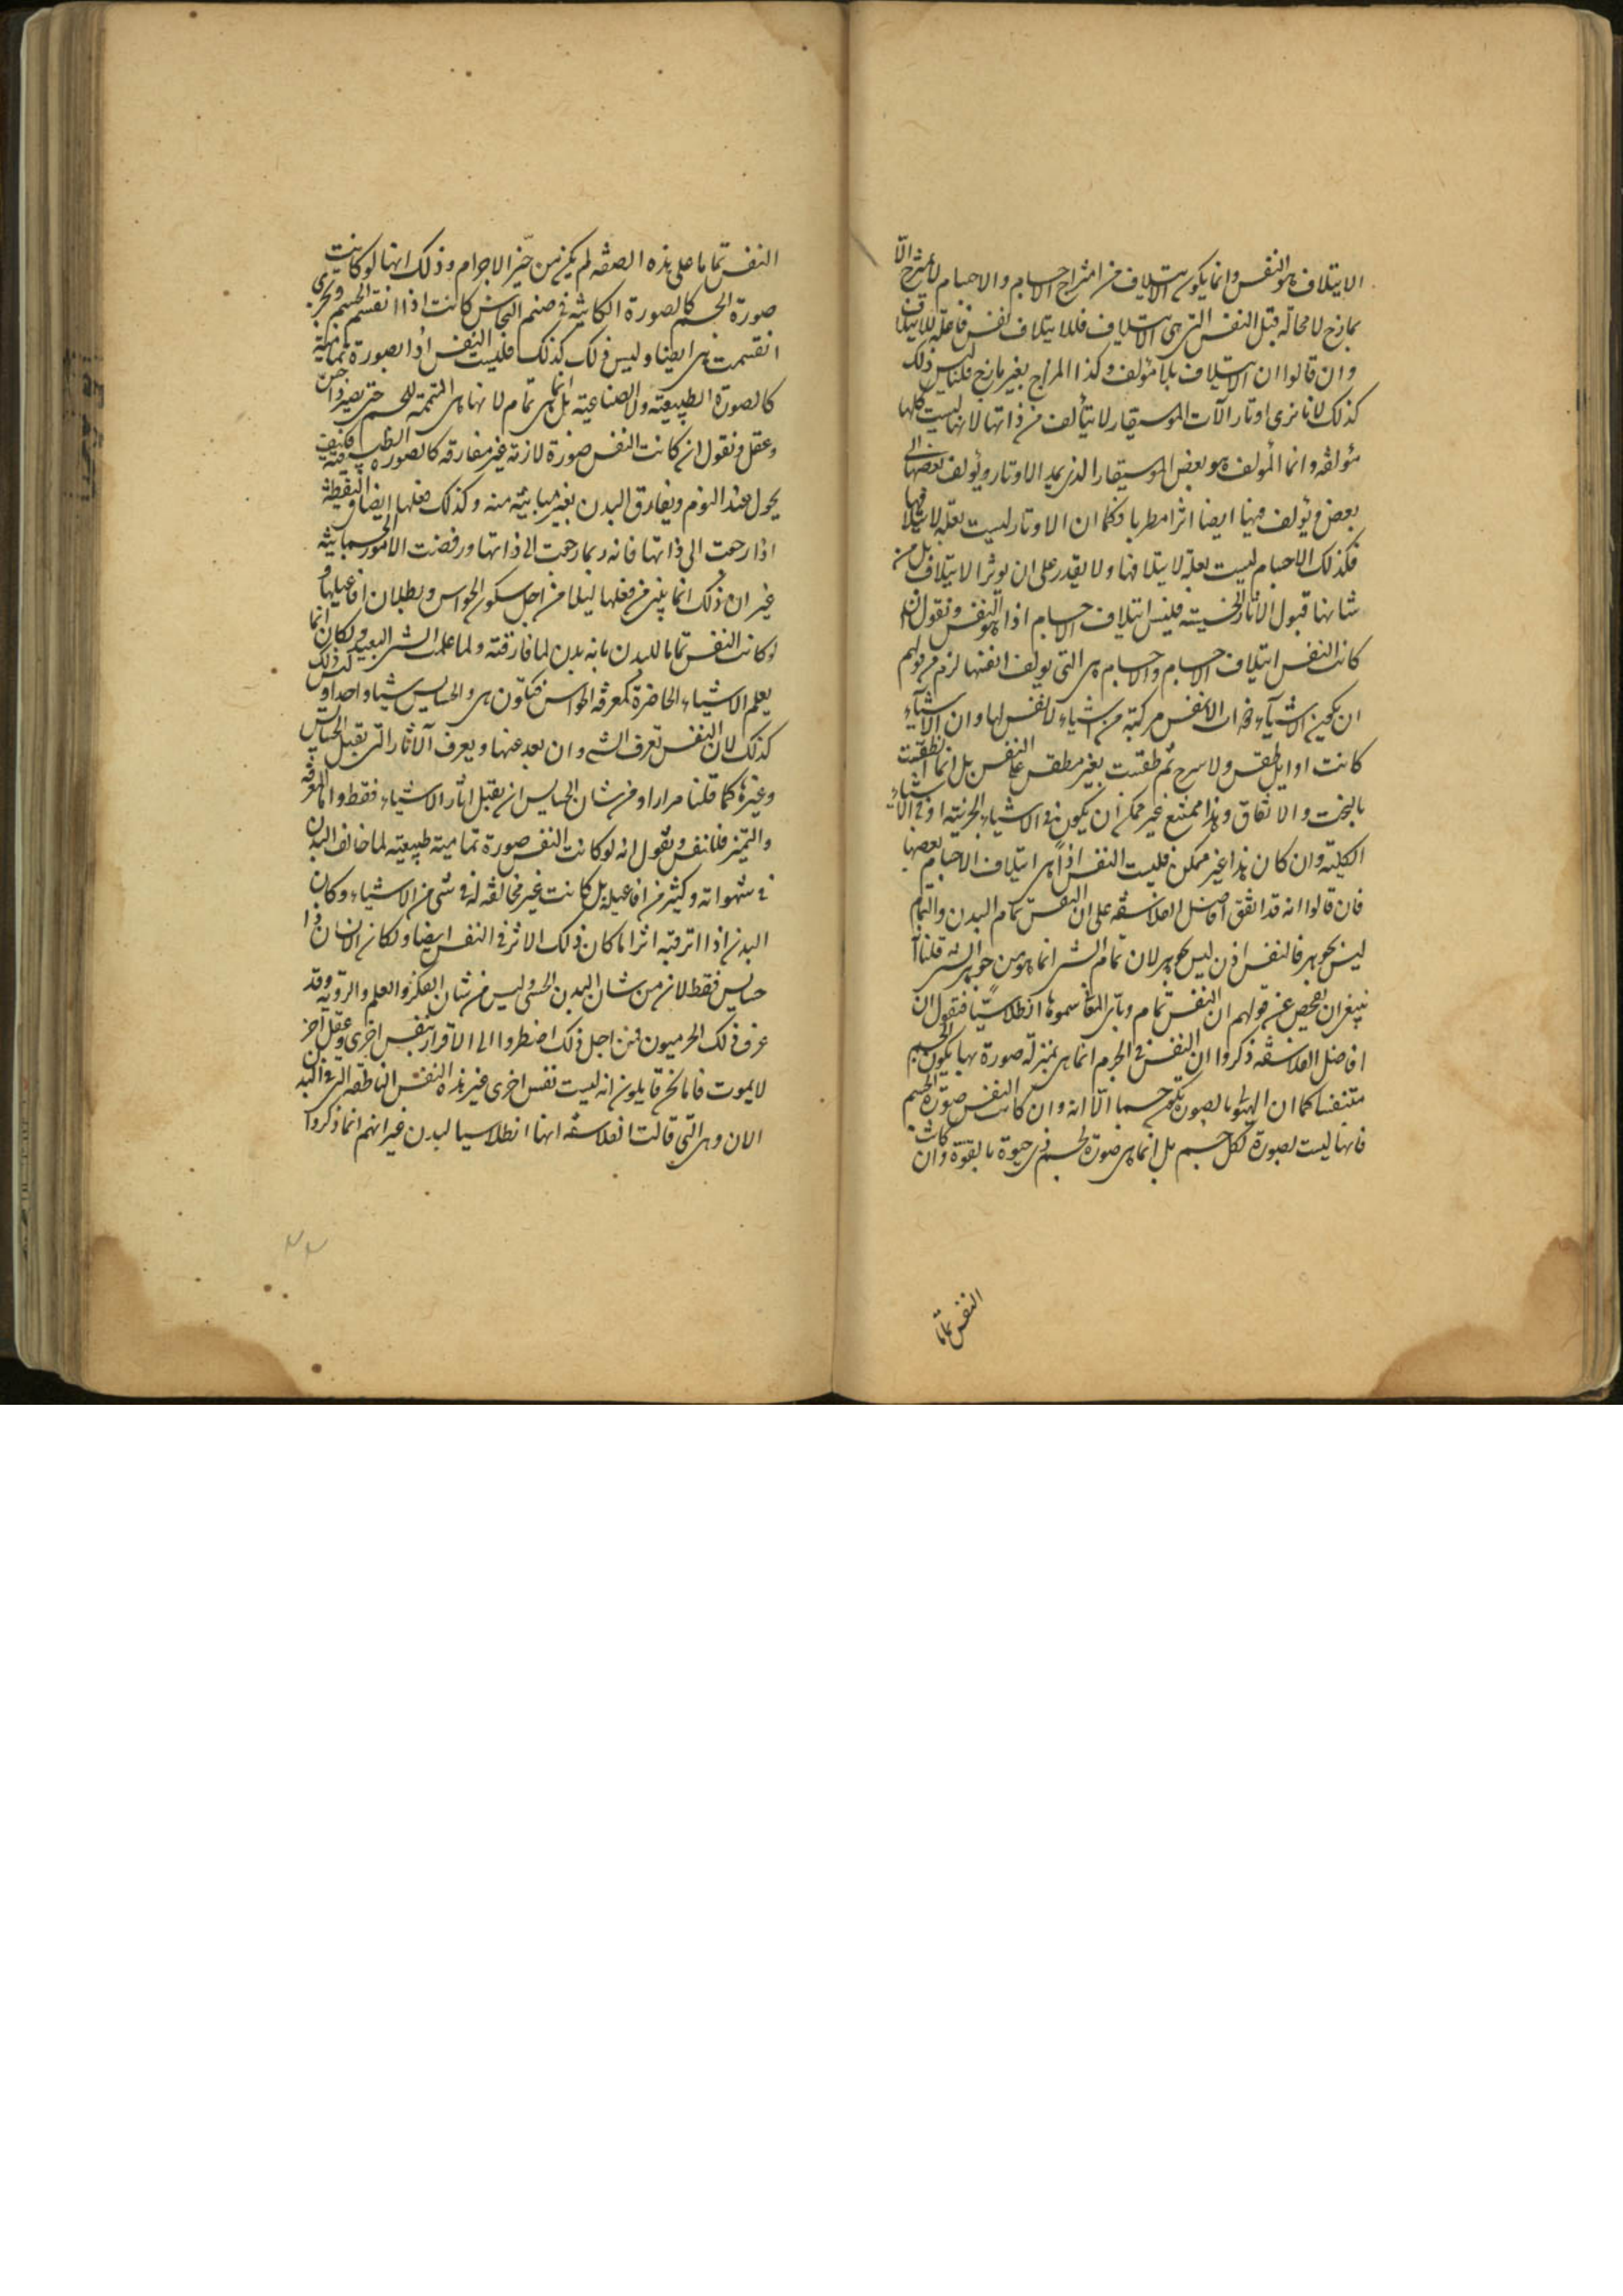 الايتلاف هو النفس وانما يكون الايتلاف من امتزاج الاجسام والاجسام لا تمتزج الّا
بمازج لا محالة قبل النفس التى هى الايتلاف فللايتلاف نفس فاعلة للايتلاف
وان قالوا ان الايتلاف بلا مؤلف وكذا المزاج بغير مازج قلنا ليس ذلك
كذلك لانا نرى اوتار الآت الموسيقار لا يتألف من ذاتها لانها ليست كلها
مؤلفة وانما المؤلف هو بعض الموسيقار الذى يمد الاوتار ويؤلف بعضها الى
بعض ويؤلف فيها ايضا اثرا مطربا وكما ان الاوتار ليست بعلة لايتلافها
فكذلك الاجسام ليست بعلة لايتلافها ولا يقدر على ان يوثر الايتلاف بل من
شانها قبول الاثار الحسية فليس ايتلاف الاجسام اذا هو النفس ونقول ان
كانت النفس ايتلاف الاجسام والاجسام هى التى يولف انفسها لزم من قولهم
ان يكون الاشيآء ذوات الانفس مركبة من اشياء لا نفس لها وان الاشيآء
كانت اوايل بلا طقس ولا شرح ثم طقست بغير مطقس على النفس بل انما طقست
بالبخت والاتفاق وهذا ممتنع غير ممكن ان يكون فى الاشياء الجزئية او فى الاشياء
الكلية وان كان هذا غير ممكن فليست النفس اذاً هى ايتلاف الاجسام بعضها
فان قالوا انه قد اتفق افاضل الفلاسفة على ان النفس تمام البدن والتمام
ليس بجوهر فالنفس اذن ليس بجوهر لان تمام الشى انما هو من جوهر الشى قلنا
ينبغى ان نفحص عن قولهم ان النفس تمام وباى المعانى سموها انطلاسيّاً فنقول ان
افاضل الفلاسفة ذكروا ان النفس فى الجرم انما هى بمنزلة صورة بها يكون الجسم
متنفسا كما ان الهيولى بالصورة تكون جسما الّا انه وان كانت النفس صورة الجسم
فانها ليست بصورة لكل جسم بل انما هى صورة لجسم ذى حيوة بالقوة وان كانت
النفس تماما
النفس تماما على هذه الصفة لم يكن من حيّز الاجرام وذلك انها لو كانت
صورة الجسم كالصورة الكائنة فى صنم النحاس كانت اذا انقسم الجسم وتجزى
انقسمت هى ايضا وليس ذلك كذلك فليست النفس اذا بصورة تمامية
كالصورة الطبيعية والصناعية بل انما هى تمام لانها هى المتممة للجسم حتى يصير ذا حس
وعقل ونقول ان كانت النفس صورة لازمة غير مفارقة كالصورة الطبيعية فكيف
يحول عند النوم ويفارق البدن بغير مباينة منه وكذلك فعلها ايضا فى اليقظة
اذا رجعت الى ذاتها فانه ربما رجعت الى ذاتها ورفضت الامور الجسمانية
غير ان ذلك انما يتبين من فعلها ليلا من اجل سكون الحواس وبطلان افاعيلها و
لو كانت النفس تماما للبدن بانه بدن لما فارقته ولما علمت الشى البعيد ولكان انما
يعلم الاشياء الحاضرة كمعرفة الحواس فيكون هى والحسايس شيا واحدا وليس ذلك
كذلك لان النفس تعرف الشى وان بعد عنها ويعرف الآثار التى تقبل الحسايس
وغيرها كما قلنا مرارا ومن شان الحسايس ان يقبل اثار الاشياء فقط واما المعرفة
والتميز فللنفس ونقول انه لو كانت النفس صورة تمامية طبيعية لما خالف البدن
فى شهواته وكثير من افاعيله بل كانت غير مخالفة له فى شى من الاشياء وكان
البدن اذا اثر فيه اثرا ما كان ذلك الاثر فى النفس ايضا ولكان الانسان ذا
حسايس فقط لان من شان البدن الحس وليس من شان الفكر والعلم والروية وقد
عرف ذلك الجرميون فمن اجل ذلك اضطروا الى الاقرار بنفس اخرى وعقل آخر
لا يموت فاما نحن قايلون انه ليست نفس اخرى غير هذه النفس الناطقة التى فى البدن
الان وهى التى قالت الفلاسفة انها انطلاسيا لبدن غير انهم انما ذكروا